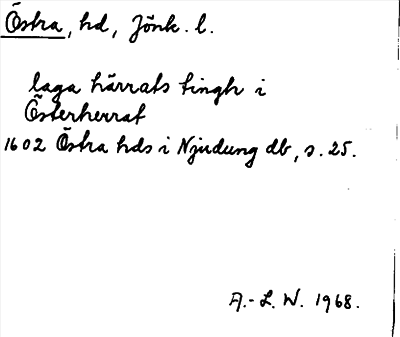 Östra, hd, Jönk. l.
laga härrats tingh i
Österherrat
1602 Östra hds i Njudung db, s. 25.
A.-L. W. 1968.